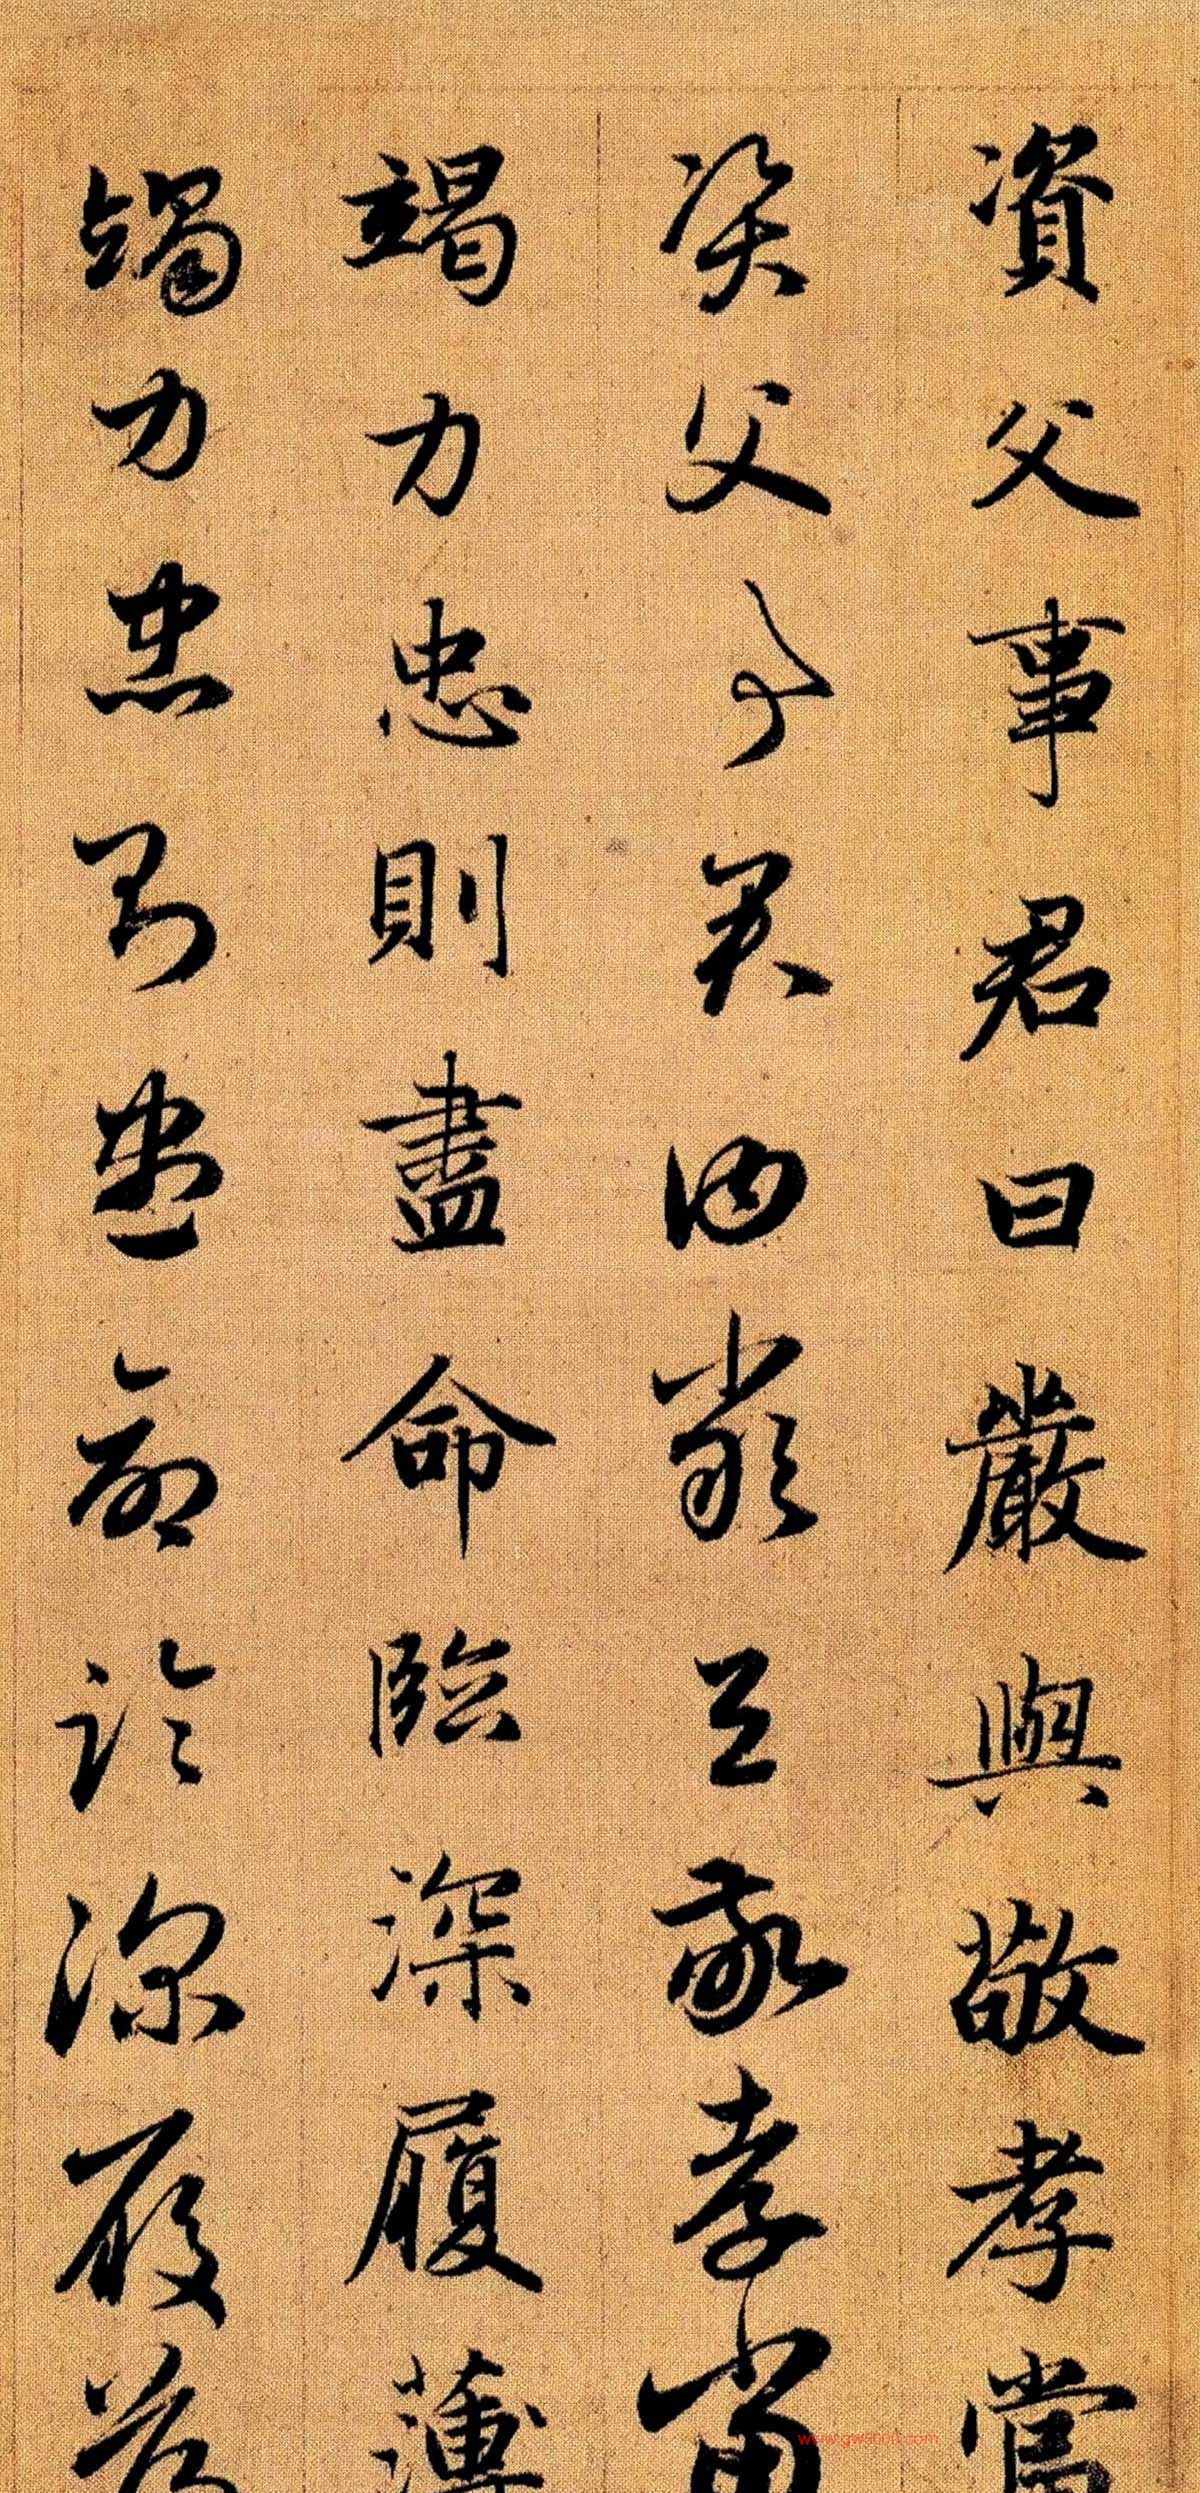 資父事君曰嚴與敬孝當
資父事君曰嚴與敬孝當
竭力忠則盡命臨深履薄
竭力忠則盡命臨深履薄
www.gw3000.com